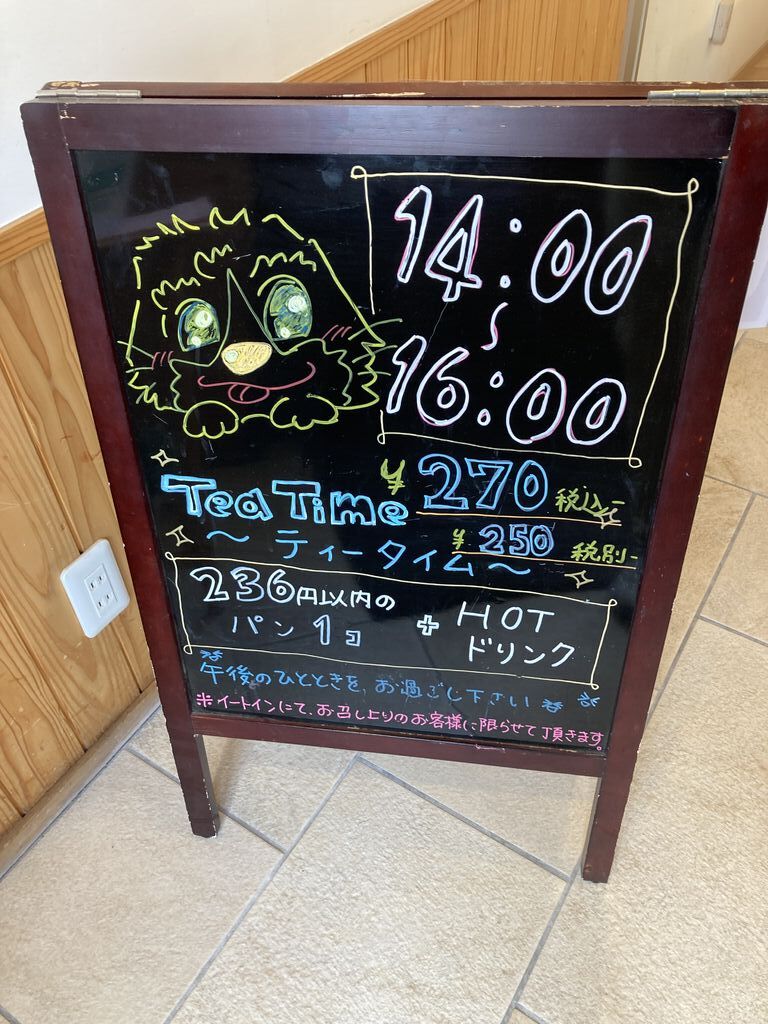 14:00
~
16:00
Tea Time
¥270税込-
¥250税別-
〜ティータイム〜
236円以内の
パン1コ
+
HOT
ドリンク
午後のひとときを、お過ごし下さい
※イートインにて、お召し上りのお客様に限らせて頂きます。